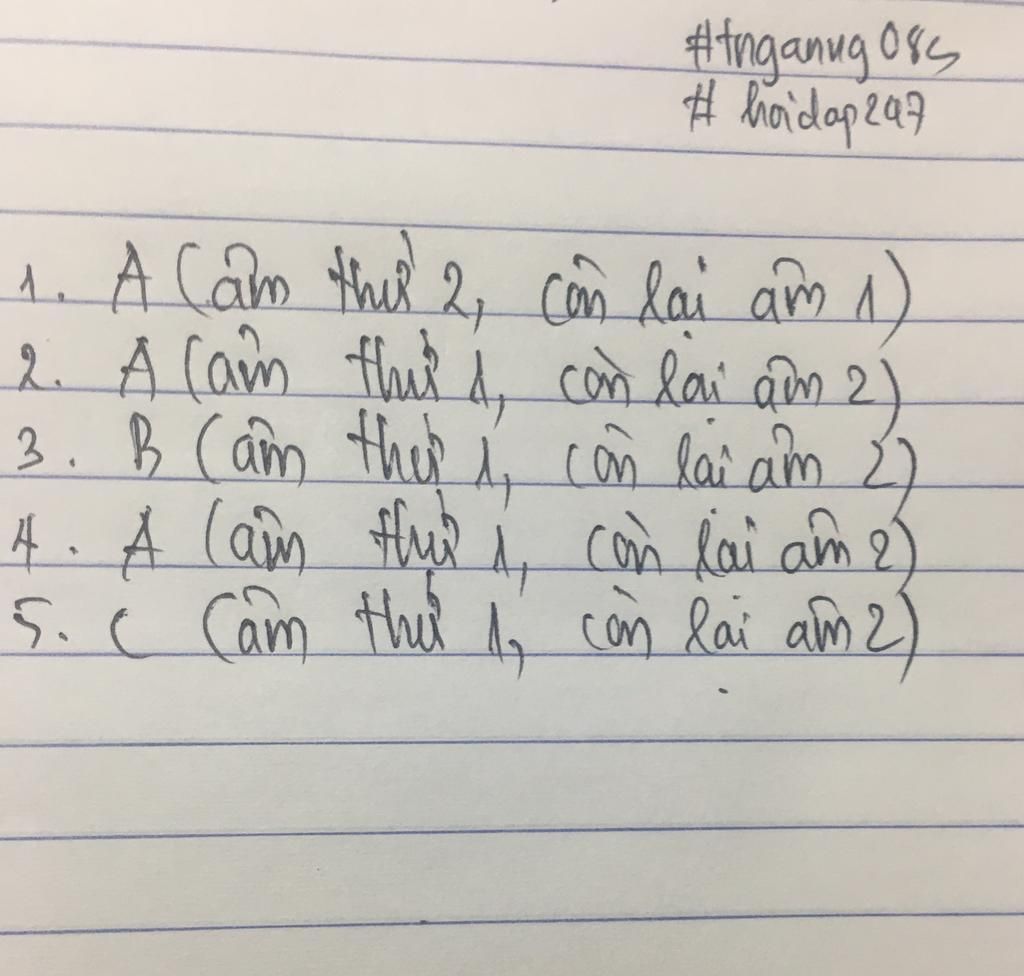 #tnganug08s
# hoidap247
1. A (âm thứ 2, còn lại âm 1)
2. A (âm thứ 1, còn lại âm 2)
3. B (âm thứ 1, còn lại âm 2)
4. A (âm thứ 1, còn lại âm 2)
5. C (âm thứ 1, còn lại âm 2)